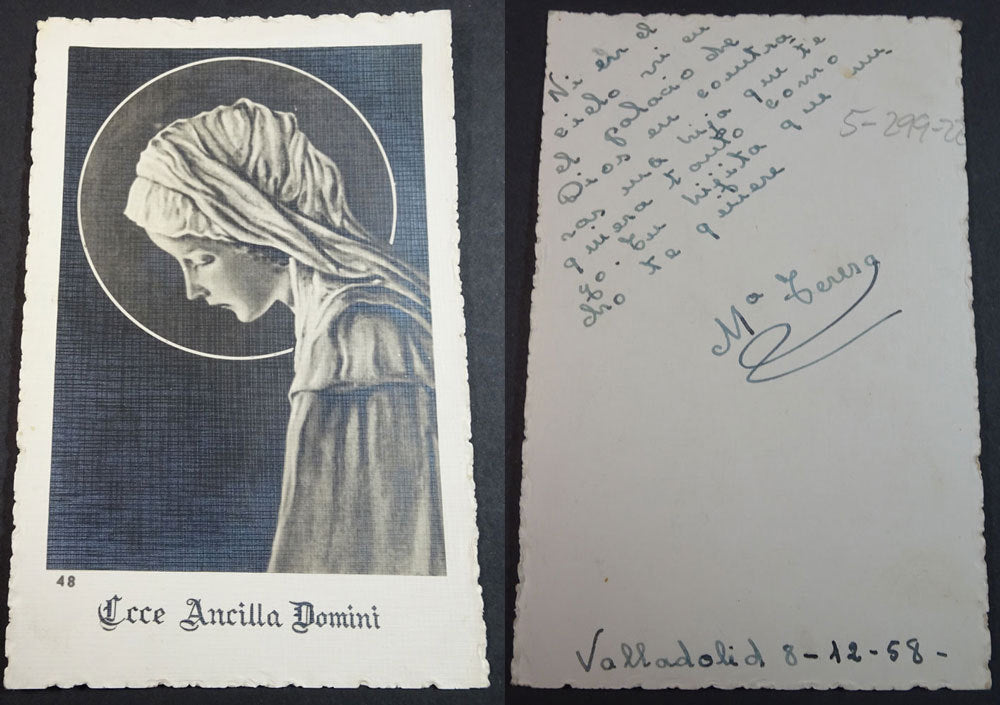 48
Ecce Ancilla Domini
Ni en el
cielo ni en
el palacio de
Dios en contra
ras una hija que te
quiera tanto como
yo. tu hijita que mu
cho te quiere
Mª Teresa
Valladolid 8-12-58-